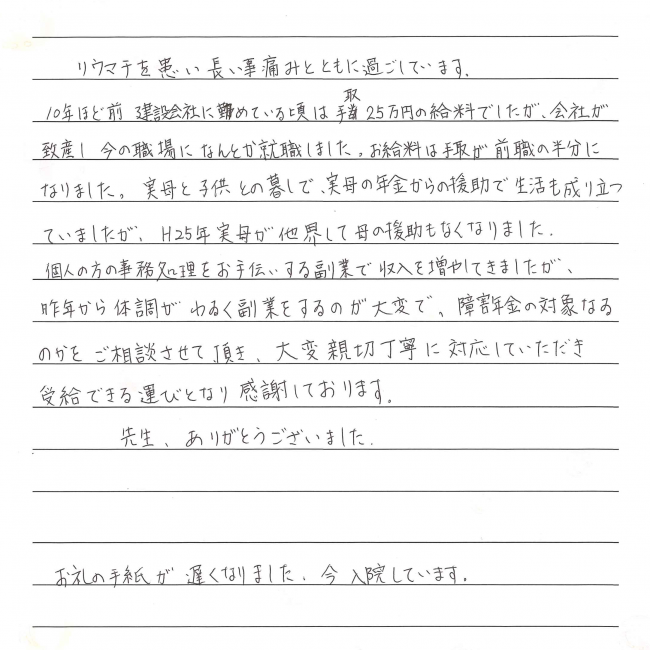 リウマチを患い長い事痛みとともに過ごしています。
10年ほど前 建設会社に勤めている頃は手取25万円の給料でしたが、会社が
致産し 今の職場になんとか就職しました。お給料は手取が前職の半分に
なりました。実母と子供との暮しで、実母の年金からの援助で生活も成り立つ
ていましたが、H25年実母が他界して母の援助もなくなりました。
個人の方の事務処理をお手伝いする副業で収入を増やしてきましたが、
昨年から体調がわるく副業をするのが大変で、障害年金の対象なる
のかをご相談させて頂き、大変親切丁寧に対応していただき
受給できる運びとなり感謝しております。
先生、ありがとうございました。
お礼の手紙が遅くなりました。今入院しています。